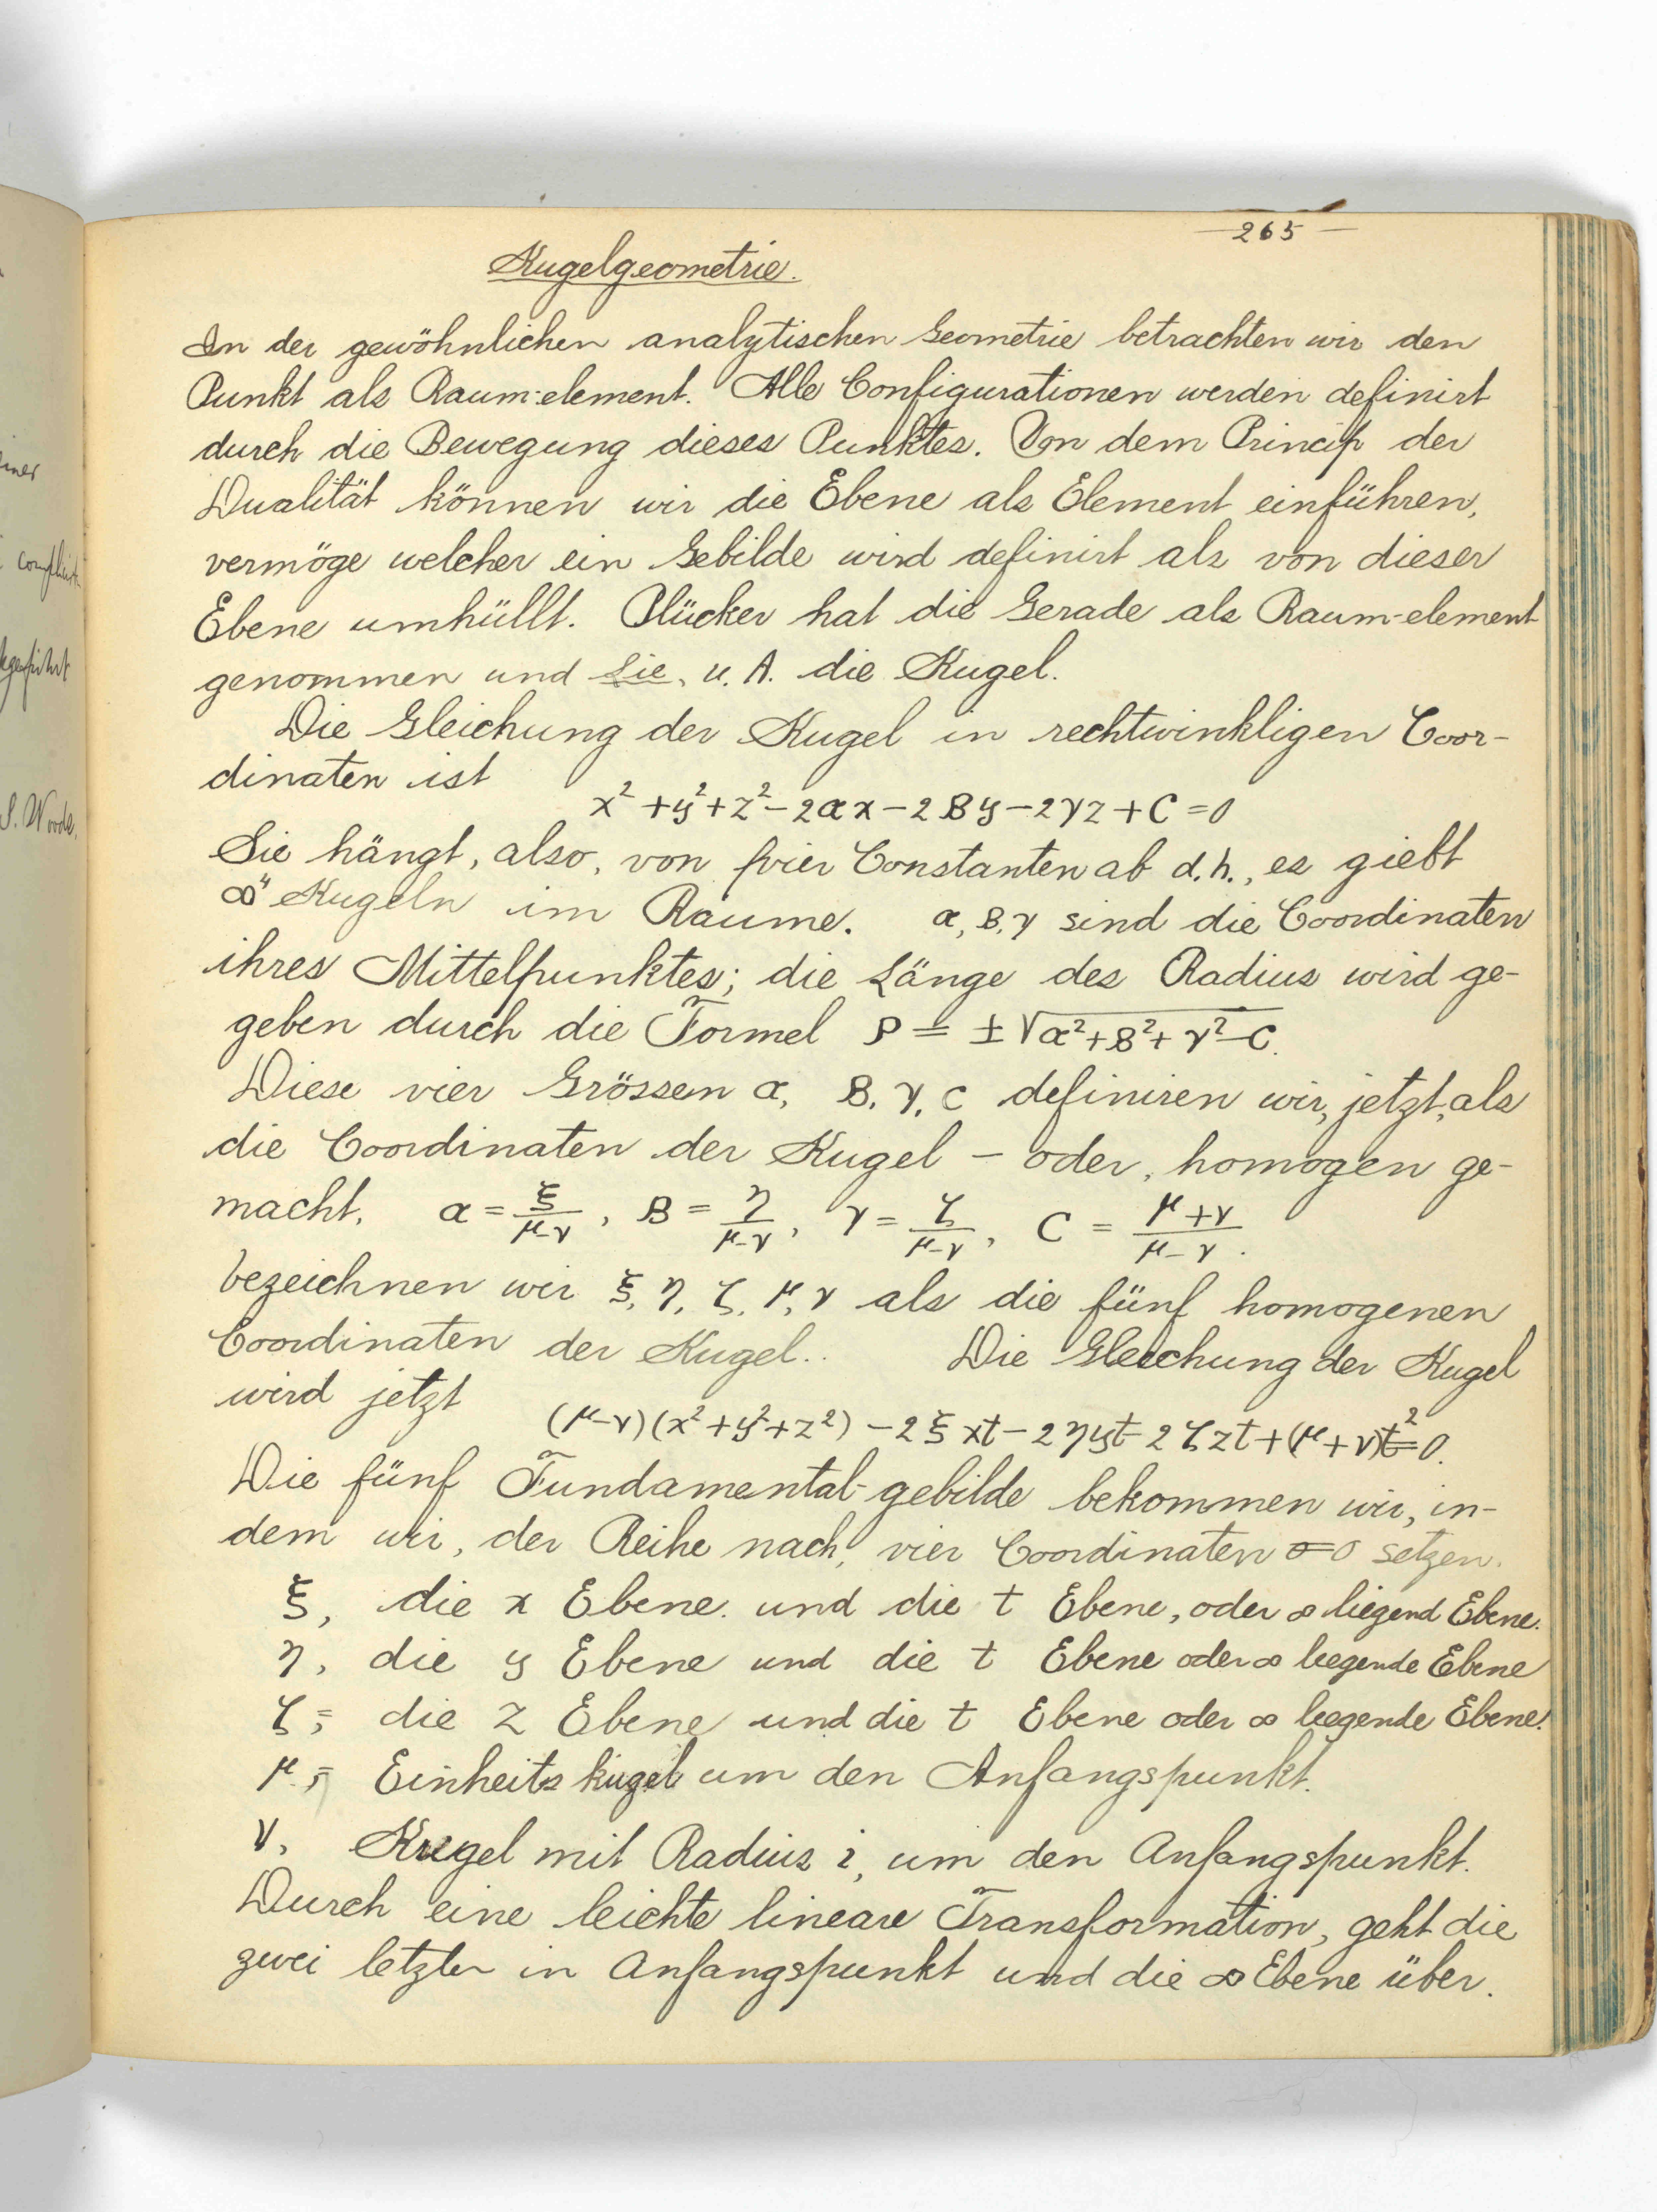 265
Kugelgeometrie.
In der gewöhnlichen analytischen Geometrie betrachten wir den
Punkt als Raum-element. Alle Configurationen werden definirt
durch die Bewegung dieses Punktes. Von dem Princip der
Dualität können wir die Ebene als Element einführen,
vermöge welcher ein Gebilde wird definirt als von dieser
Ebene umhüllt. Plücker hat die Gerade als Raum-element
genommen und Lie, u. A. die Kugel.
Die Gleichung der Kugel in rechtwinkligen Coor-
dinaten ist
x² + y² + z² - 2αx - 2βy - 2γz + C = 0
Sie hängt, also, von vier Constanten ab d.h., es giebt
∞⁴ Kugeln im Raume. α, β, γ sind die Coordinaten
ihres Mittelpunktes; die Länge des Radius wird ge-
geben durch die Formel ρ = ±√α²+β²+γ²-C.
Diese vier Grössen α, β, γ, C definiren wir, jetzt, als
die Coordinaten der Kugel - oder, homogen ge-
macht, α = ξ/(μ-ν), β = η/(μ-ν), γ = ζ/(μ-ν), C = (μ+ν)/(μ-ν).
bezeichnen wir ξ, η, ζ, μ, ν als die fünf homogenen
Coordinaten der Kugel.. Die Gleichung der Kugel
wird jetzt
(μ-ν)(x²+y²+z²) - 2ξxt - 2ηyt - 2ζzt + (μ+ν)t² = 0.
Die fünf Fundamental-gebilde bekommen wir, in-
dem wir, der Reihe nach, vier Coordinaten = 0 setzen.
ξ, die x Ebene. und die t Ebene, oder ∞ liegend Ebene.
η, die y Ebene und die t Ebene oder ∞ liegende Ebene
ζ, = die z Ebene und die t Ebene oder ∞ liegende Ebene.
μ, = Einheitskugel um den Anfangspunkt.
ν, Kugel mit Radius i, um den Anfangspunkt.
Durch eine leichte lineare Transformation, geht die
zwei letzter in Anfangspunkt und die ∞ Ebene über.
S. Woods.